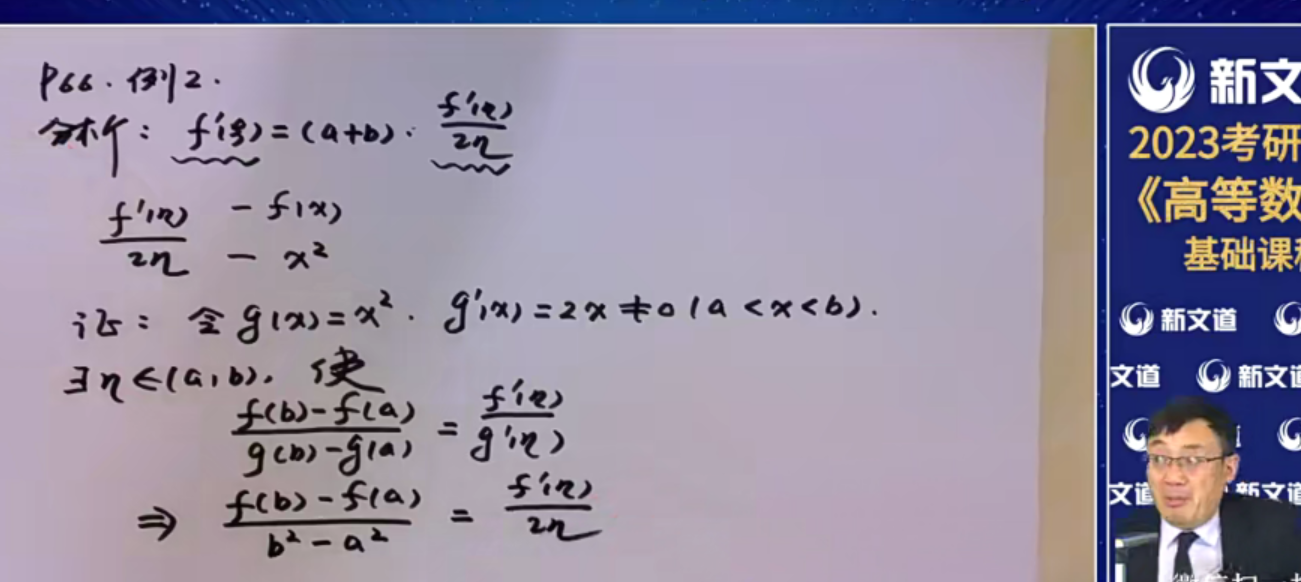 P66. 例2.
分析: f'(ξ) = (a+b) · f'(η)/2η
f'(η)/2η — f(x)
— x²
证: 令 g(x) = x². g'(x) = 2x ≠ 0 (a < x < b).
∃ η ∈ (a, b), 使
f(b) - f(a)/g(b) - g(a) = f'(η)/g'(η)
⇒ f(b) - f(a)/b² - a² = f'(η)/2η
新文
2023考研
《高等数
基础课
新文道
文道 新文道
文道 新文道